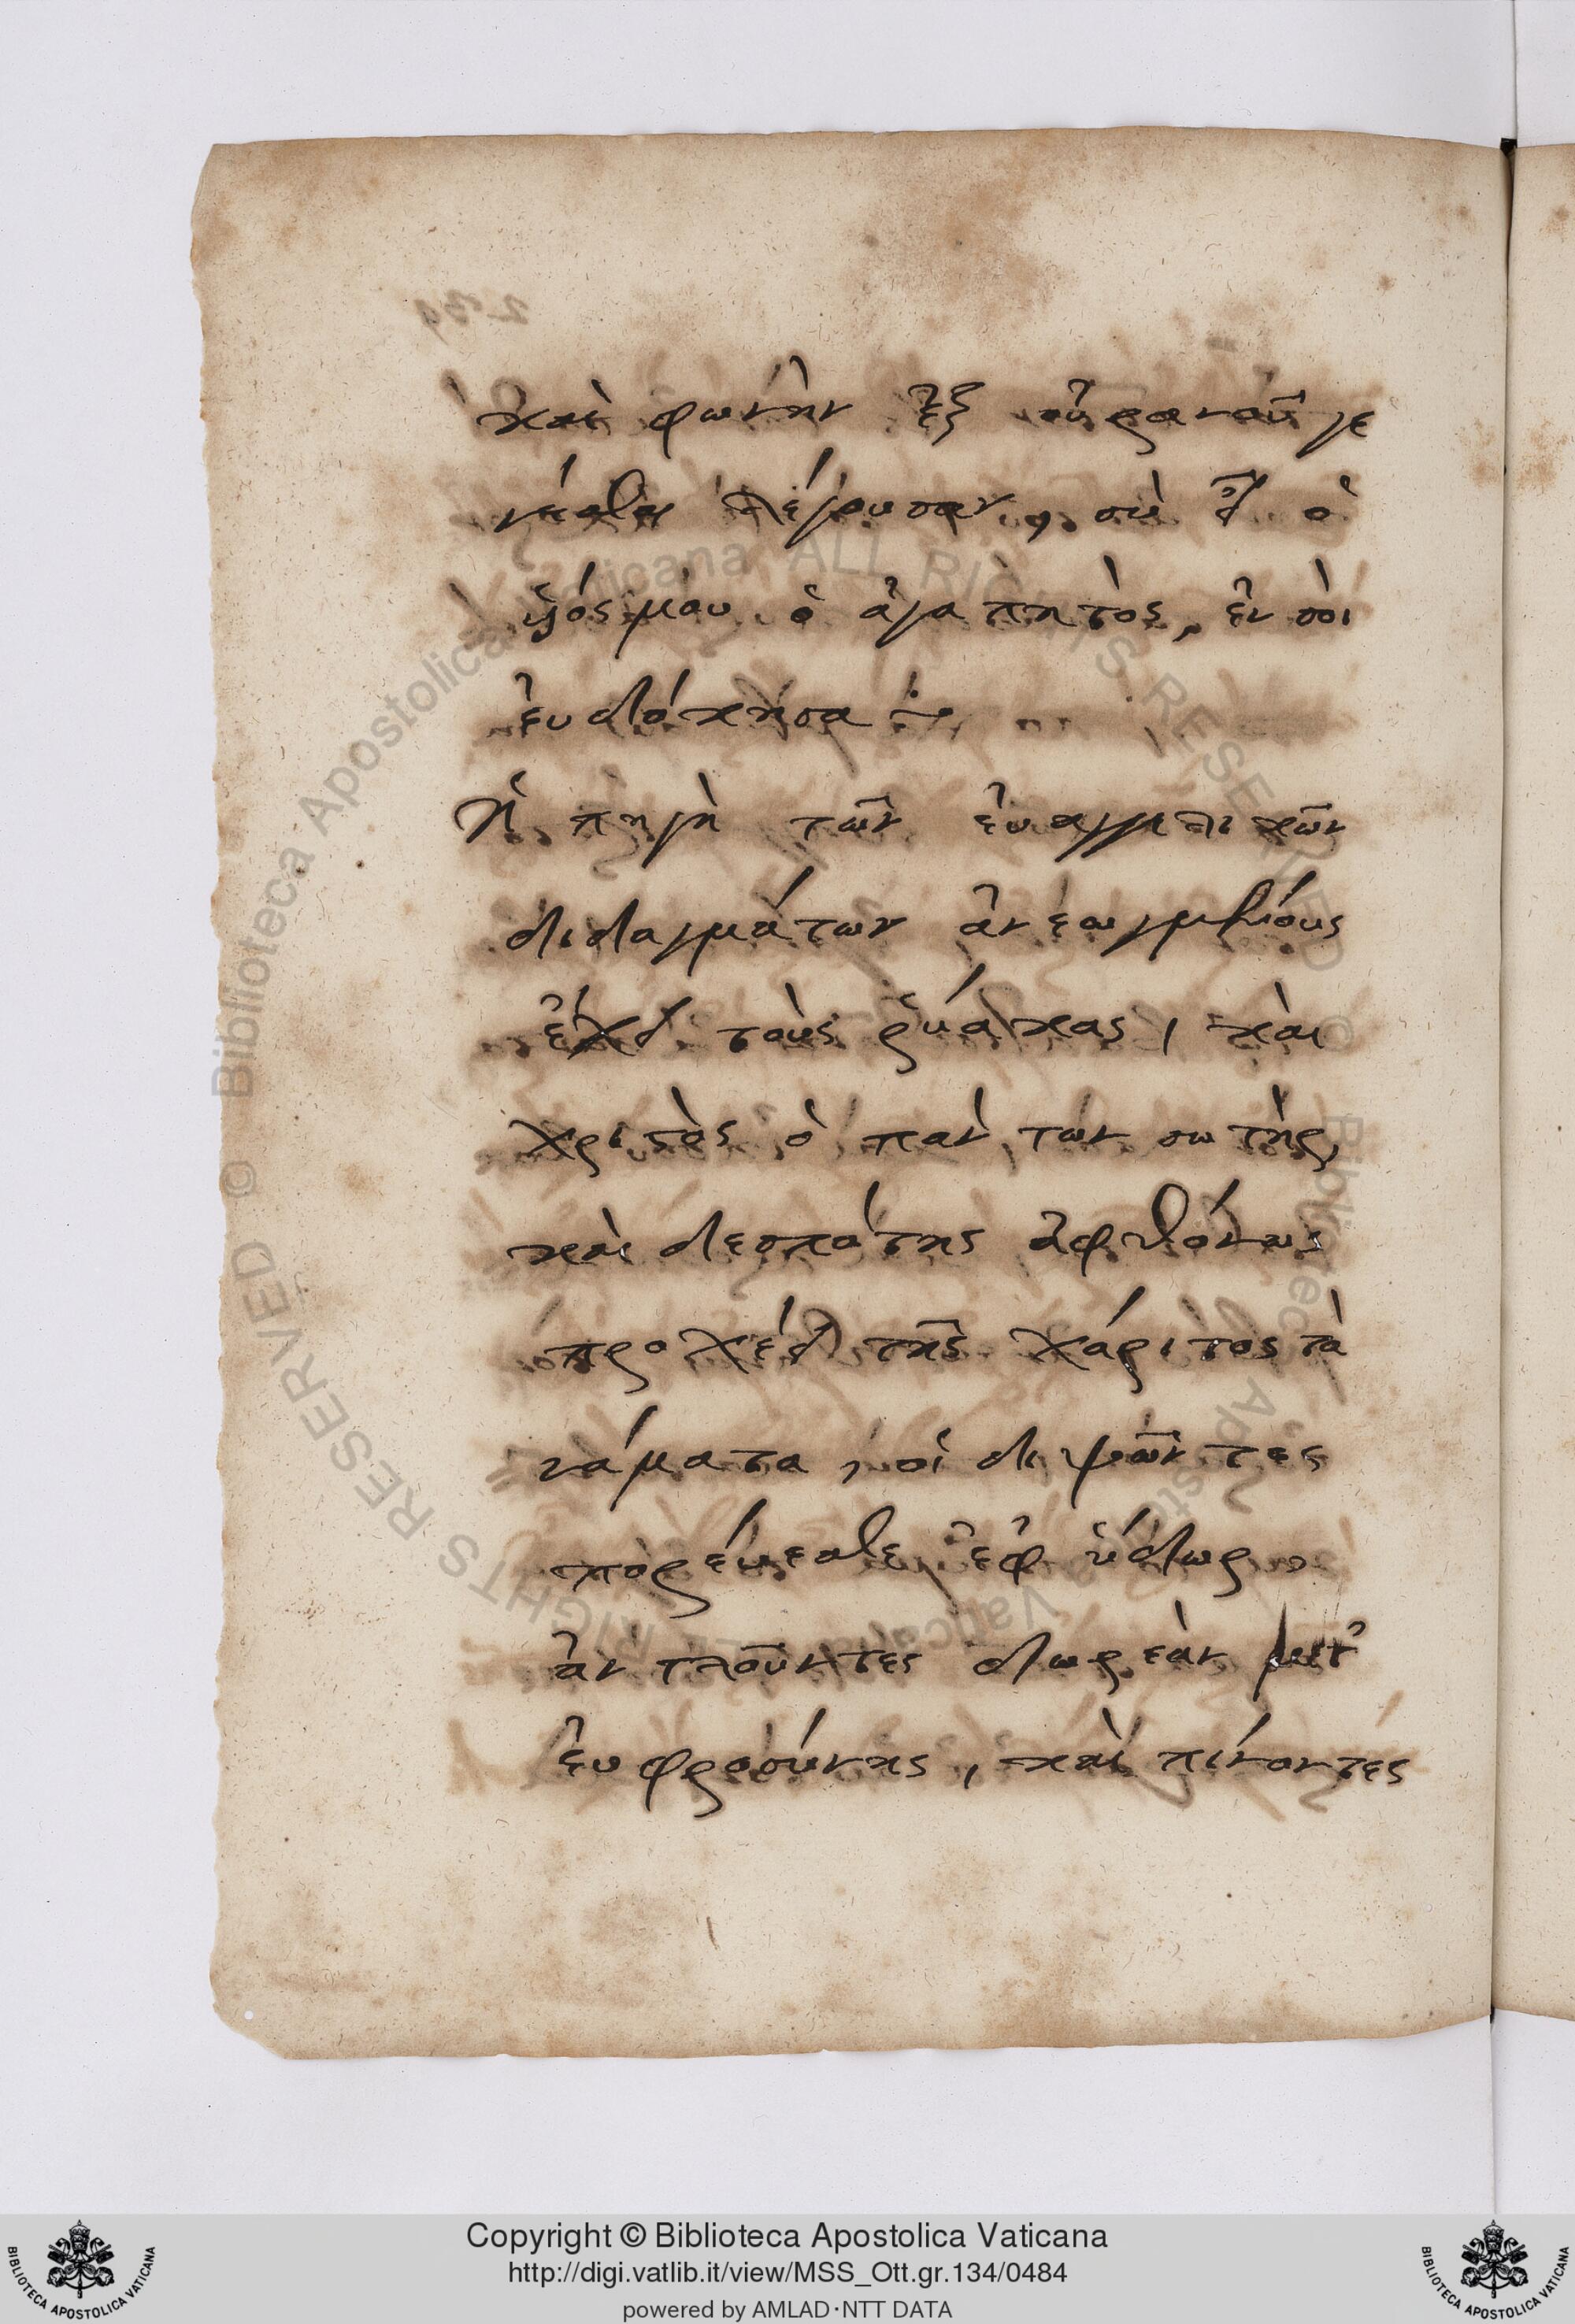 καὶ φωνὴν ἐξ οὐρανοῦ γε
νέσθαι λέγουσαν, σὺ εἶ ὁ
ϋἱός μου ὁ ἀγαπητὸς, ἐν σοὶ
ἐυδόκησα
Ἡ πηγὴ τῶν ἐυαγγελικῶν
διδαγμάτων ἀνεωγμένους
ἔχει τοὺς ῥύακας, καὶ
χριστὸς ὁ πάντων σωτὴρ,
καὶ δεσπότης ἀφθόνως
προχέει τῆς χάριτος τὰ
νάματα, οἱ διψῶντες
πορέυεσθε ἐφ ὕδωρ,
ἀντλοῦντες δωρεὰν μετ'
ἐυφροσύνης, καὶ πίνοντες
Copyright © Biblioteca Apostolica Vaticana
http://digi.vatlib.it/view/MSS_Ott.gr.134/0484
powered by AMLAD·NTT DATA
BIBLIOTECA APOSTOLICA VATICANA
BIBLIOTECA APOSTOLICA VATICANA